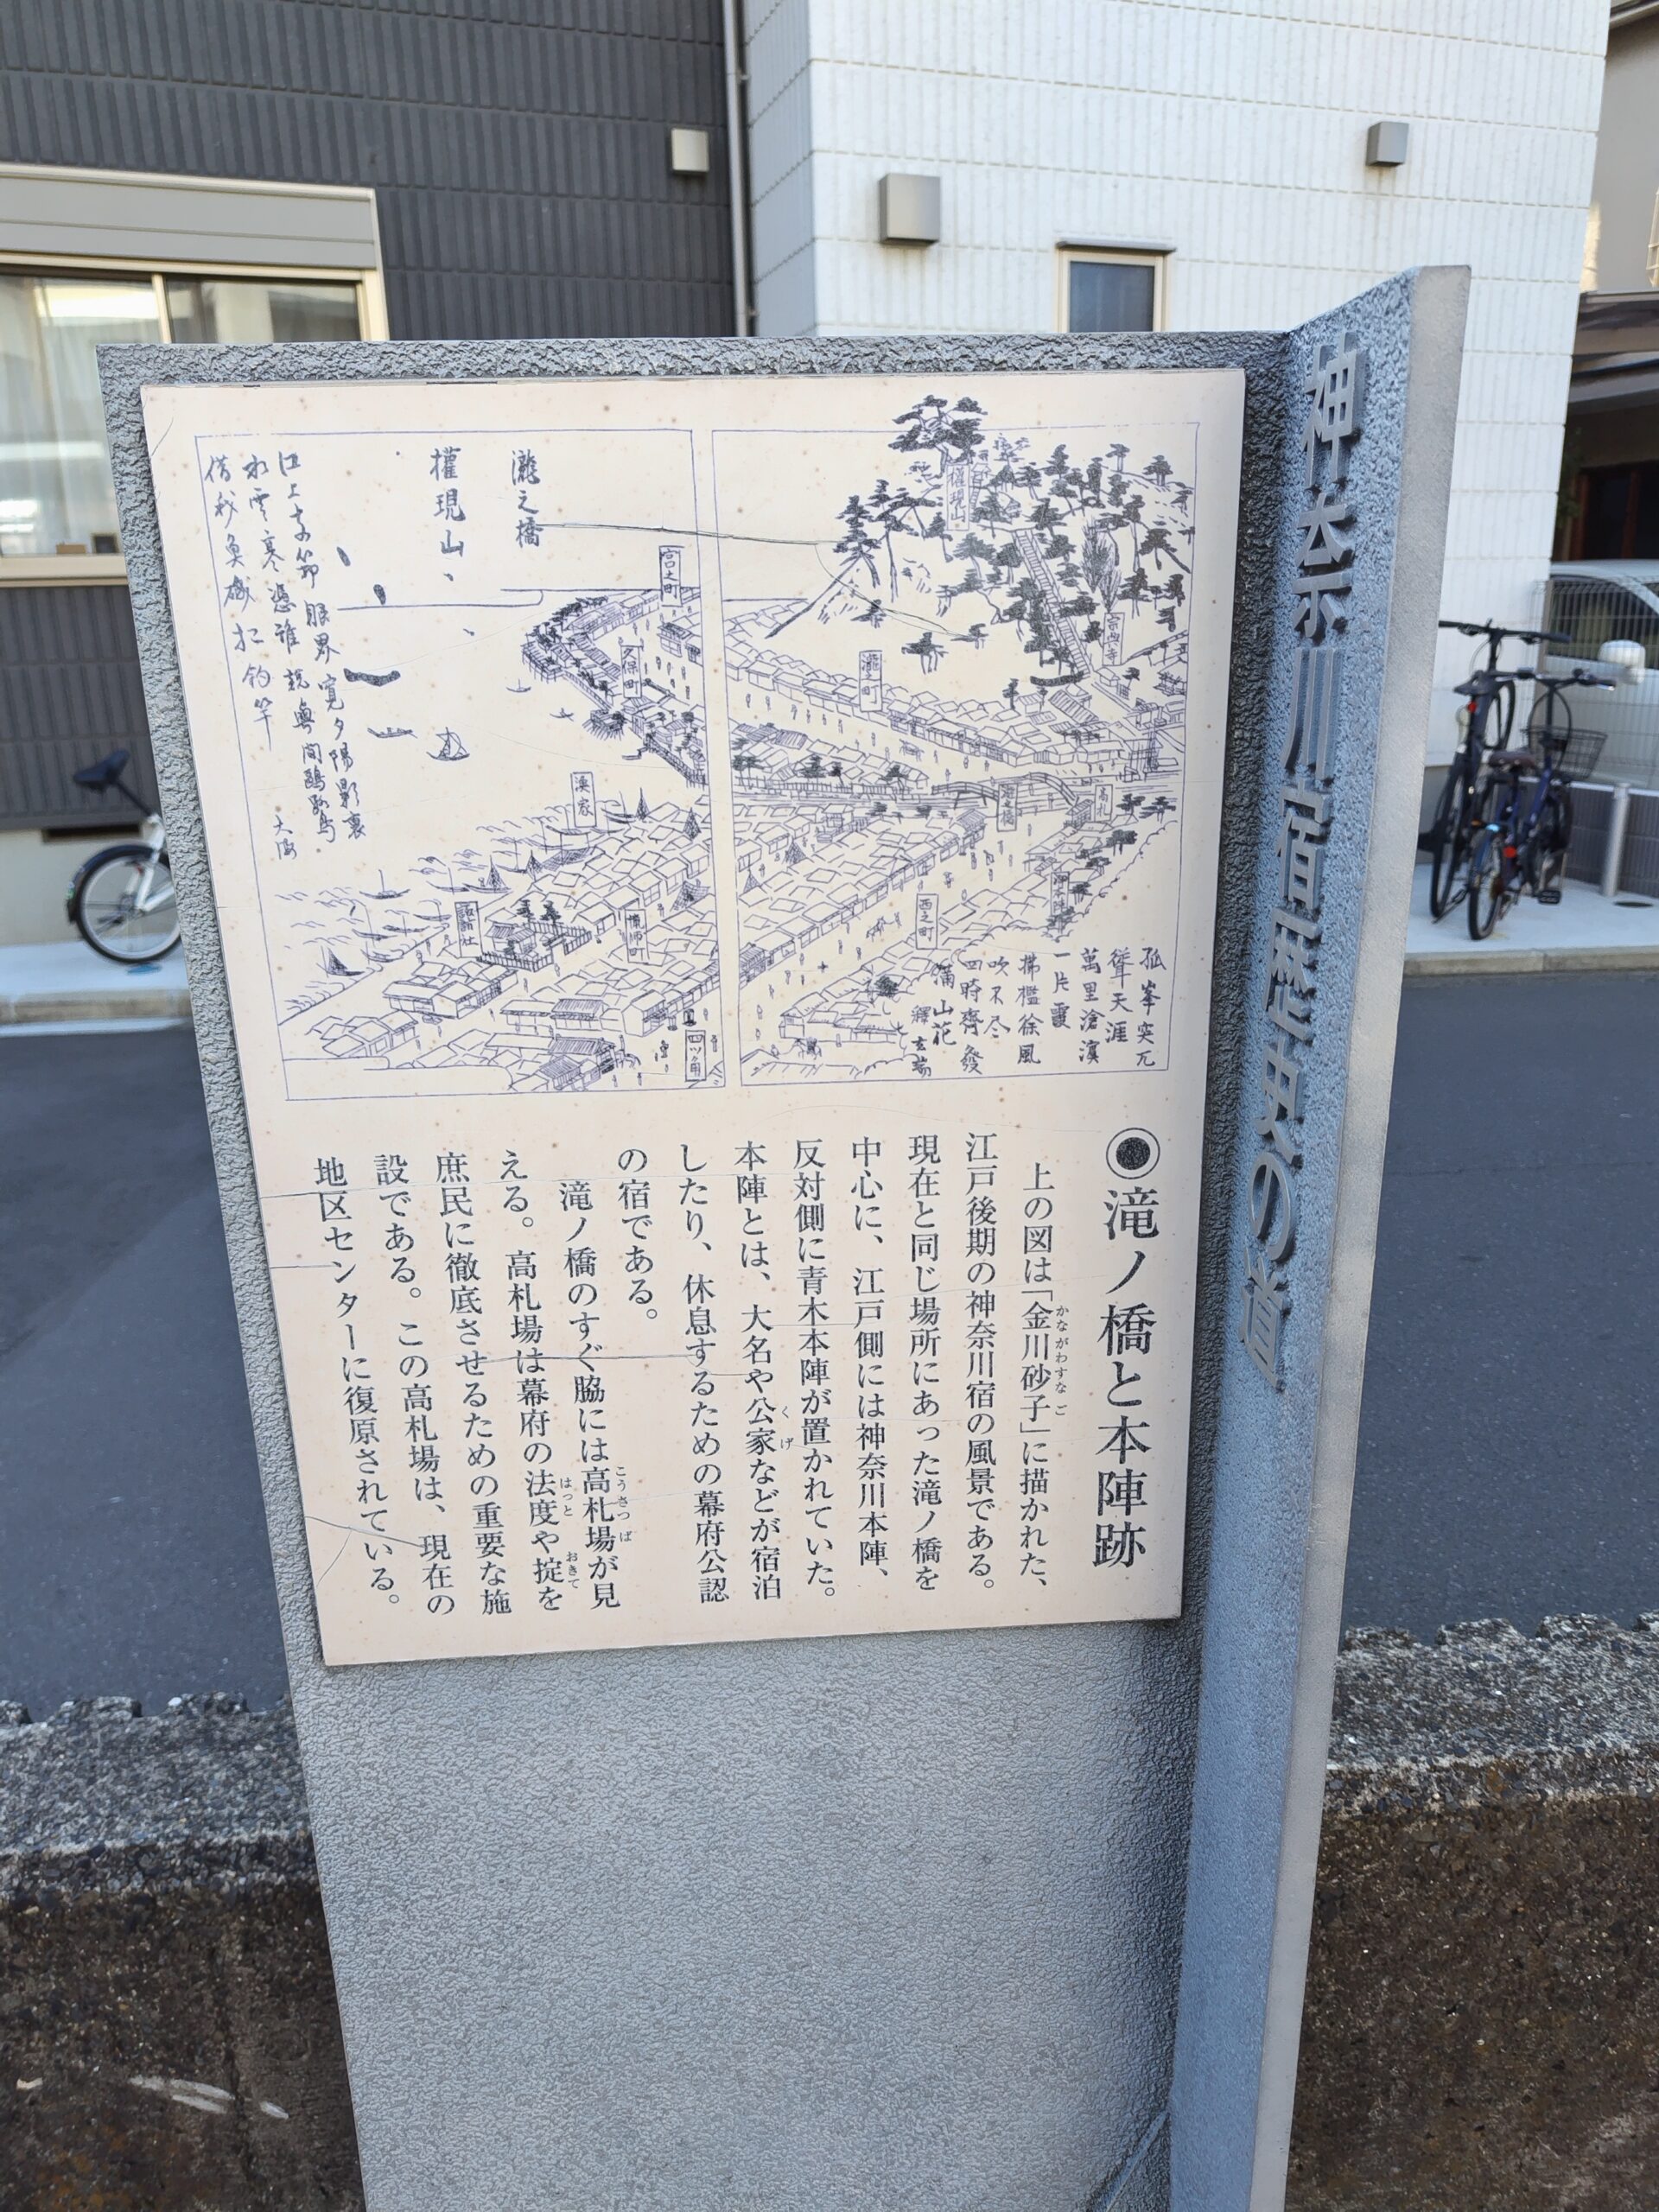 神奈川宿歴史の道
瀧之橋
權現山、
江上
水雲寒
眼界寛夕陽影裏
借我魚磯把釣竿
權現山
宮之町
久保町
瀧之町
宗興寺
漁家
瀧之橋
高札
本陣
西之町
諏訪社
四ツ角
孤峯突兀
聳天涯
萬里滄溟
一片霞
拂檻徐風
吹不尽
四時齊發
滿山花
釋玄端
●滝ノ橋と本陣跡
上の図は「金川砂子」に描かれた、
かながわすなご
江戸後期の神奈川宿の風景である。
現在と同じ場所にあった滝ノ橋を
中心に、江戸側には神奈川本陣、
反対側に青木本陣が置かれていた。
本陣とは、大名や公家などが宿泊
くげ
したり、休息するための幕府公認
の宿である。
滝ノ橋のすぐ脇には高札場が見
こうさつば
える。高札場は幕府の法度や掟を
はっと
おきて
庶民に徹底させるための重要な施
設である。この高札場は、現在の
地区センターに復原されている。